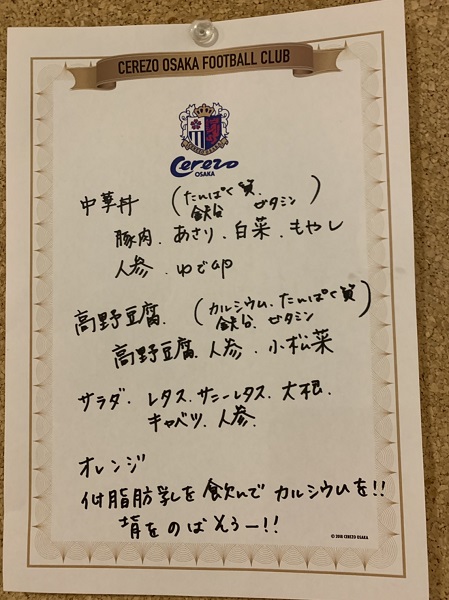 CEREZO OSAKA FOOTBALL CLUB
Cerezo
OSAKA
中華丼 (たんぱく質、
鉄分 ビタミン)
豚肉、あさり、白菜、もやし
人参、ゆで卵
高野豆腐、(カルシウム、たんぱく質
鉄分、ビタミン)
高野豆腐、人参、小松菜
サラダ、レタス、サニーレタス、大根、
キャベツ、人参、
オレンジ
低脂肪乳を飲んでカルシウムを!!
背をのばそうー!!
© 2018 CEREZO OSAKA